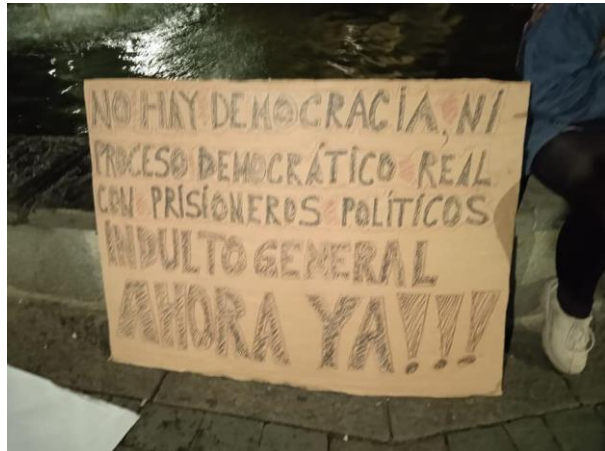 NO HAY DEMOCRACÍA, NI
PROCESO DEMOCRÁTICO REAL
CON PRISIONEROS POLÍTICOS
INDULTO GENERAL
AHORA YA!!!